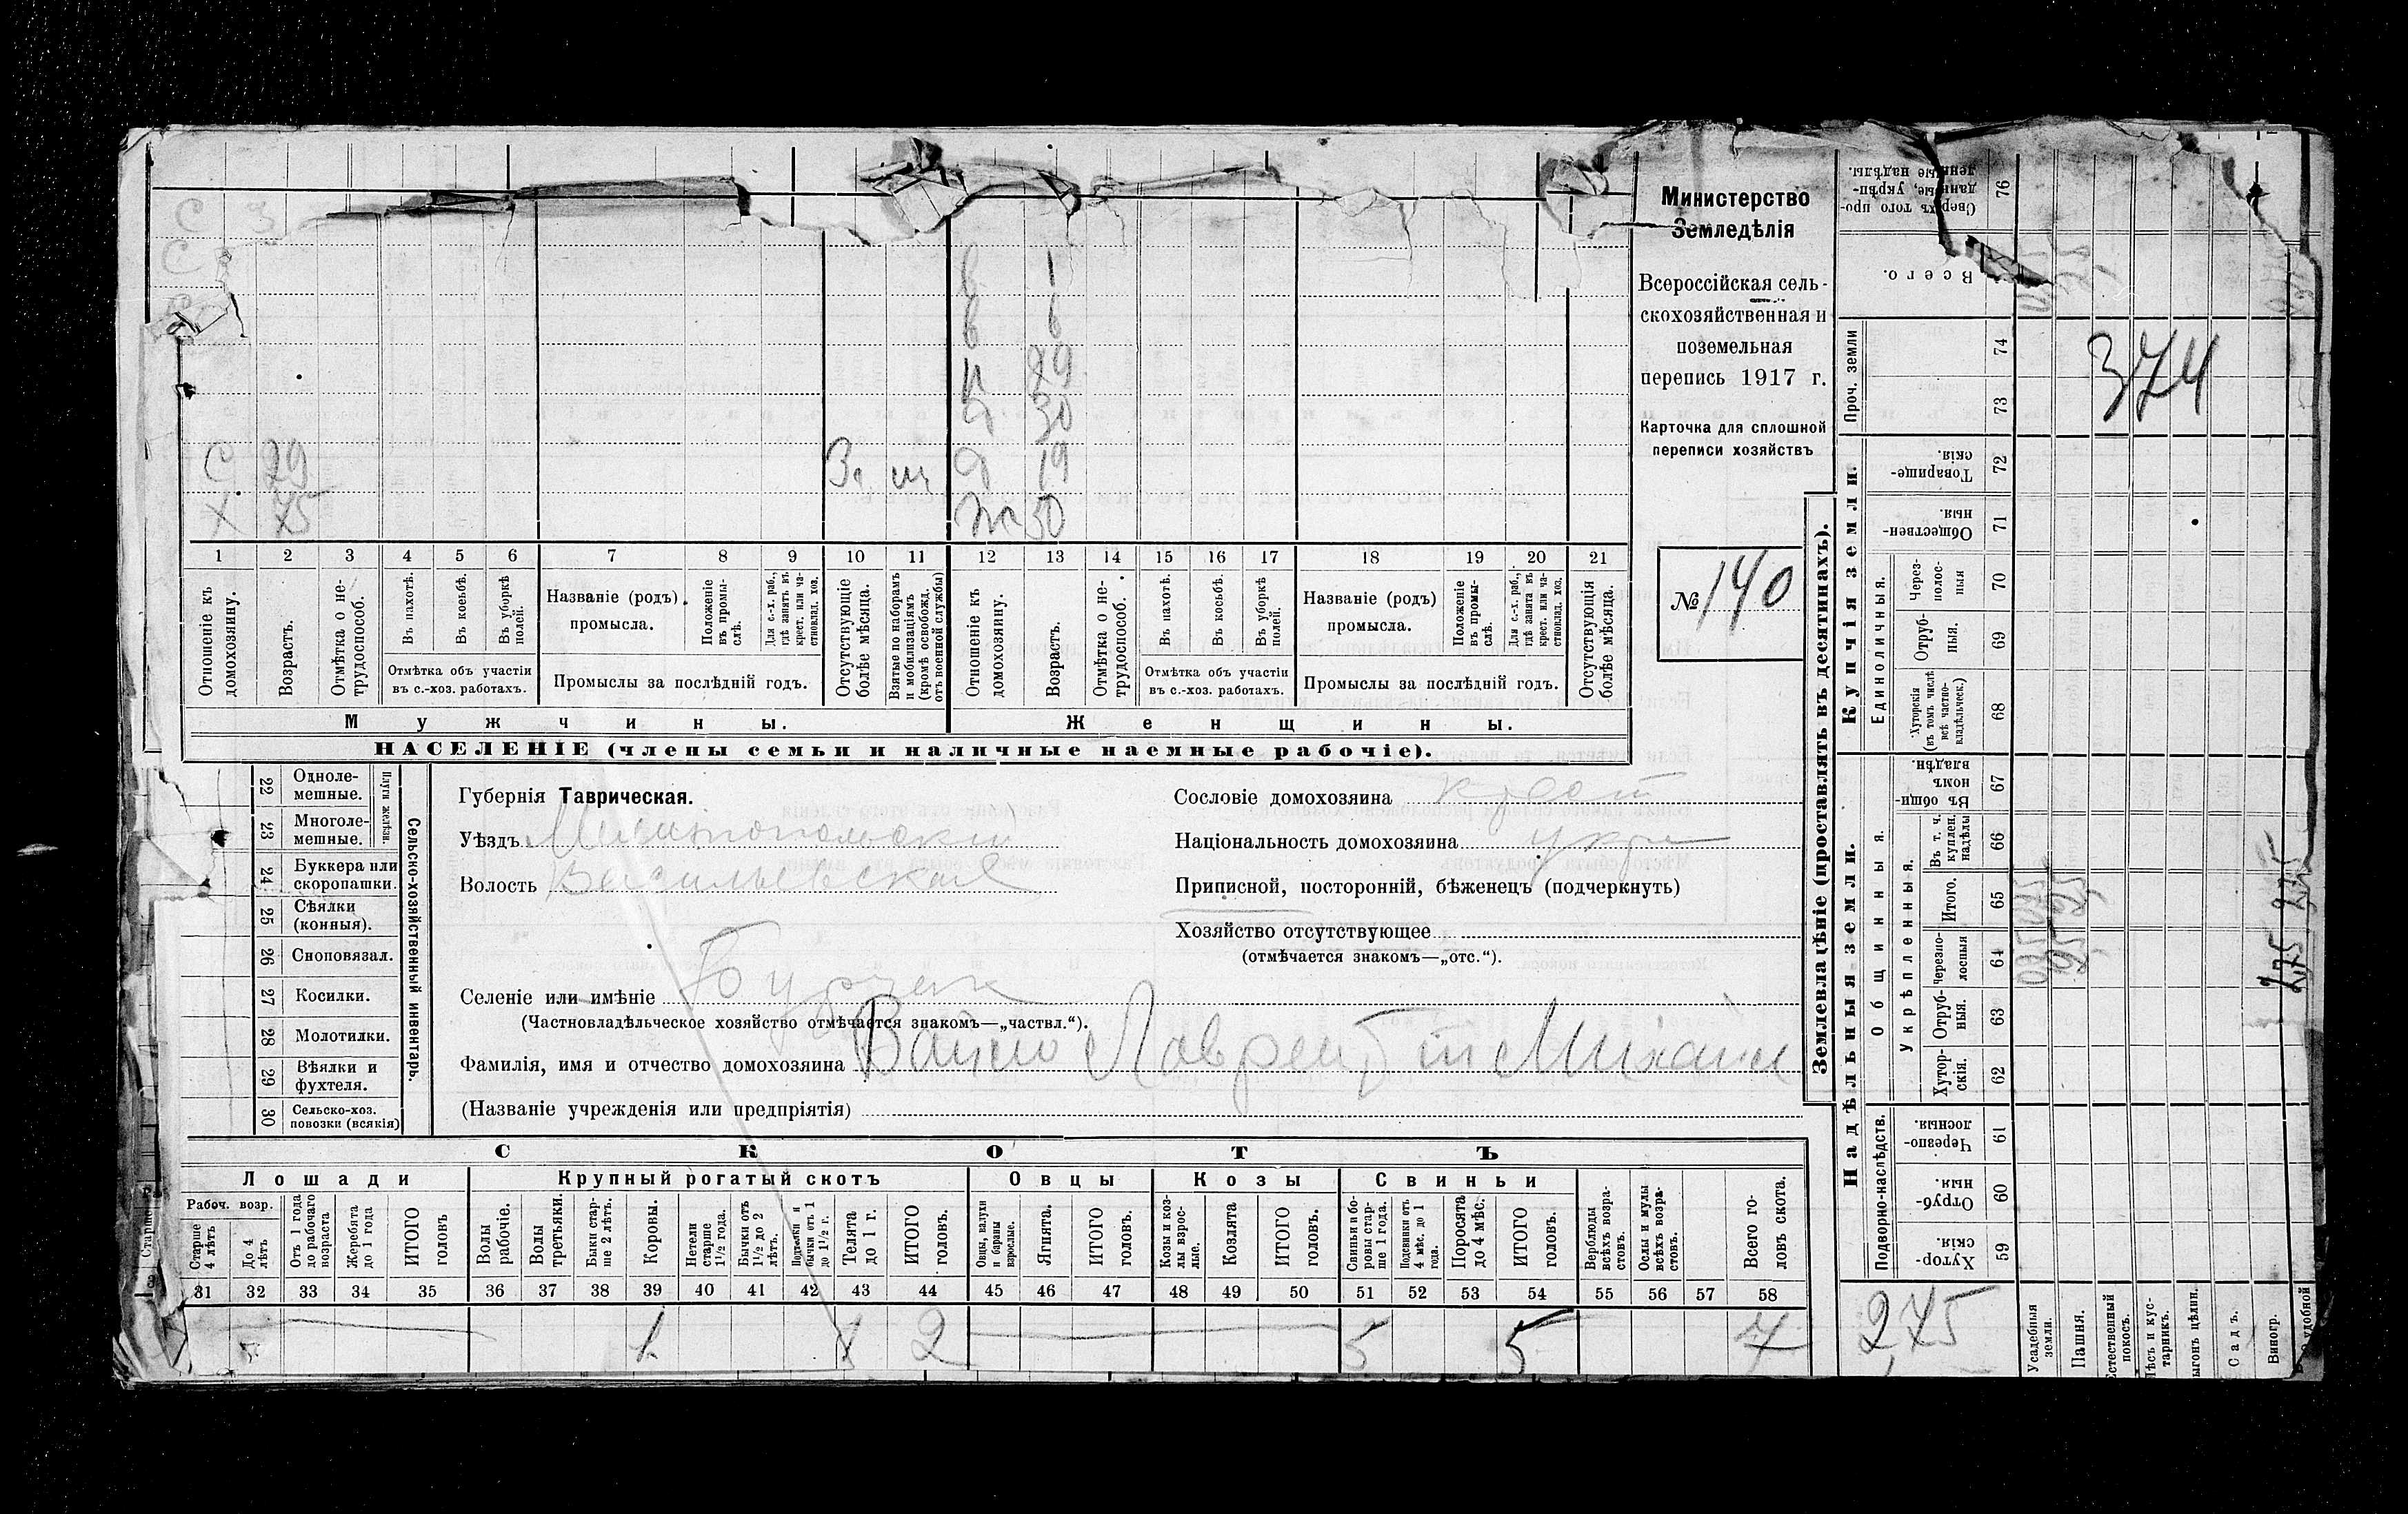 С 3
С
в 1
в 6
н 29
д 30
С 29 Зп ш д 19
Х 75 Ж 50
1 2 3 4 5 6 7 8 9 10 11 12 13 14 15 16 17 18 19 20 21
Отношеніе къ домохозяину.
Возрастъ.
Отмѣтка о не-трудоспособ.
Въ пахотѣ.
Въ косьбѣ.
Въ уборкѣ полей.
Отмѣтка объ участіи
въ с.-хоз. работахъ.
Названіе (родъ)
промысла.
Положеніе въ промы-слѣ.
Для с.-х. раб., гдѣ занятъ въ крест. или ча-стновлад. хоз.
Промыслы за послѣдній годъ.
Отсутствующіе болѣе мѣсяца.
Взятые по наборамъ и мобилизаціямъ (кромѣ освобожд. отъ военной службы)
Отношеніе къ домохозяину.
Возрастъ.
Отмѣтка о не-трудоспособ.
Въ пахотѣ.
Въ косьбѣ.
Въ уборкѣ полей.
Отмѣтка объ участіи
въ с.-хоз. работахъ.
Названіе (родъ)
промысла.
Положеніе въ промы-слѣ.
Для с.-х. раб., гдѣ занята въ крест. или ча-стновлад. хоз.
Промыслы за послѣдній годъ.
Отсутствующія болѣе мѣсяца.
Мужчины.
Женщины.
НАСЕЛЕНІЕ (члены семьи и наличные наемные рабочіе).
Министерство
Земледѣлія
Всероссійская сель-
скохозяйственная и
поземельная
перепись 1917 г.
Карточка для сплошной
переписи хозяйствъ
№ 140
22 Однолемешные.
23 Многолемешные.
Плуги желѣзн.
24 Буккера или скоропашки.
25 Сѣялки (конныя).
26 Сноповязал.
27 Косилки.
28 Молотилки.
29 Вѣялки и фухтеля.
30 Сельско-хоз. повозки (всякія)
Сельско-хозяйственный инвентарь.
Губернія Таврическая.
Уѣздъ Мелитопольский
Волость Васильевская
Селеніе или имѣніе Бурчак
(Частновладѣльческое хозяйство отмѣчается знакомъ—„частвл.“).
Фамилія, имя и отчество домохозяина Вайло Лаврентій Михаил
(Названіе учрежденія или предпріятія)
Сословіе домохозяина крест
Національность домохозяина укр
Приписной, посторонній, бѣженецъ (подчеркнуть)
Хозяйство отсутствующее
(отмѣчается знакомъ—„отс.“).
СКОТЪ
Лошади
Крупный рогатый скотъ
Овцы
Козы
Свиньи
Рабоч. возр.
Старше 4 лѣтъ
До 4 лѣтъ
Отъ 1 года до рабочаго возраста
Жеребята до 1 года
ИТОГО головъ
Волы рабочіе.
Волы третьяки.
Быки стар-ше 2 лѣтъ.
Коровы.
Нетели старше 1½ года.
Бычки отъ 1½ до 2 лѣтъ.
Подтелки и бычки отъ 1 до 1½ г.
Телята до 1 г.
ИТОГО головъ.
Овцы, валухи и бараны взрослые.
Ягнята.
ИТОГО головъ.
Козы и коз-лы взрос-лые.
Козлята
ИТОГО головъ.
Свиньи и бо-ровы стар-ше 1 года.
Подсвинки отъ 4 мѣс. до 1 года.
Поросята до 4 мѣс.
ИТОГО головъ.
Верблюды всѣхъ возра-стовъ.
Ослы и мулы всѣхъ возра-стовъ.
Всего го-ловъ скота.
31 32 33 34 35 36 37 38 39 40 41 42 43 44 45 46 47 48 49 50 51 52 53 54 55 56 57 58
1 1 2 5 5 7
Землевладѣніе (проставлять въ десятинахъ).
Купчія земли.
Надѣльныя земли.
Проч. земли
Единоличныя.
Общинныя.
Укрѣпленныя.
Подворно-наслѣдств.
Сверхъ того про-данные, укрѣп-ленные надѣлы. 76
Всего.
74
73
Товарище-скія. 72
Обществен-ныя. 71
Через-полос-ныя 70
Отруб-ныя. 69
Хуторскія (въ томъ числѣ всѣ частно-владѣльческ.) 68
Въ общин-номъ владѣн. 67
Въ т. ч. куплен. надѣлы 66
Итого. 65
Черезпо-лосныя 64
Отруб-ныя. 63
Хутор-скія. 62
Черезпо-лосныя. 61
Отруб-ныя. 60
Хутор-скія. 59
374
2,75 2,75
2,75
Усадебныя земли.
Пашня.
Естественный покосъ.
Лѣсъ и кус-тарникъ.
Выгонъ цѣлин.
Садъ.
Виногр.